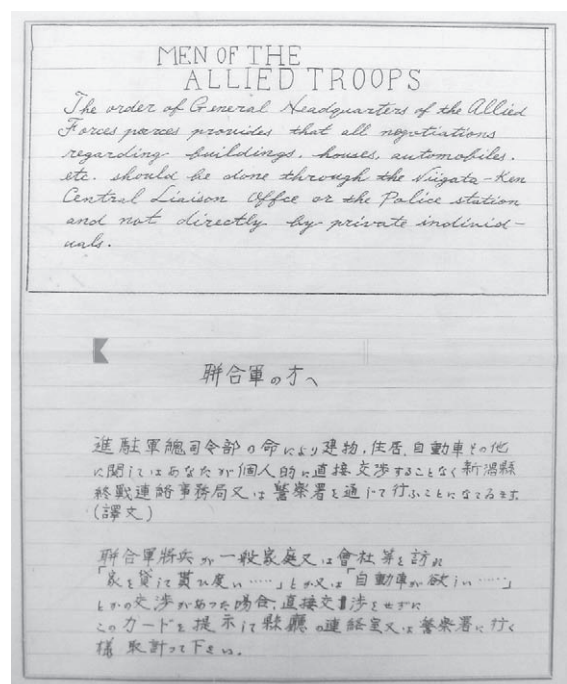 MEN OF THE
ALLIED TROOPS
The order of General Headquarters of the Allied
Forces parces provides that all negotiations
regarding buildings, houses, automobiles.
etc. should be done through the Niigata-Ken
Central Liaison Offce or the Police station
and not directly by private individ-
uals.
聯合軍の方へ
進駐軍總司令部の命により建物、住居、自動車その他
に関してはあなたが個人的に直接交渉することなく新潟縣
終戦連絡事務局又は警察署を通じて行ふことになてゐます
(譯文)
聯合軍將兵が一般家庭又は會社等を訪れ
「家を貸して貰ひ度い……」とか又は「自動車が欲しい……」
とかの交渉があつた場合、直接交渉をせずに
このカードを提示して縣廳の連絡室又は警察署に行く
様取計つて下さい。